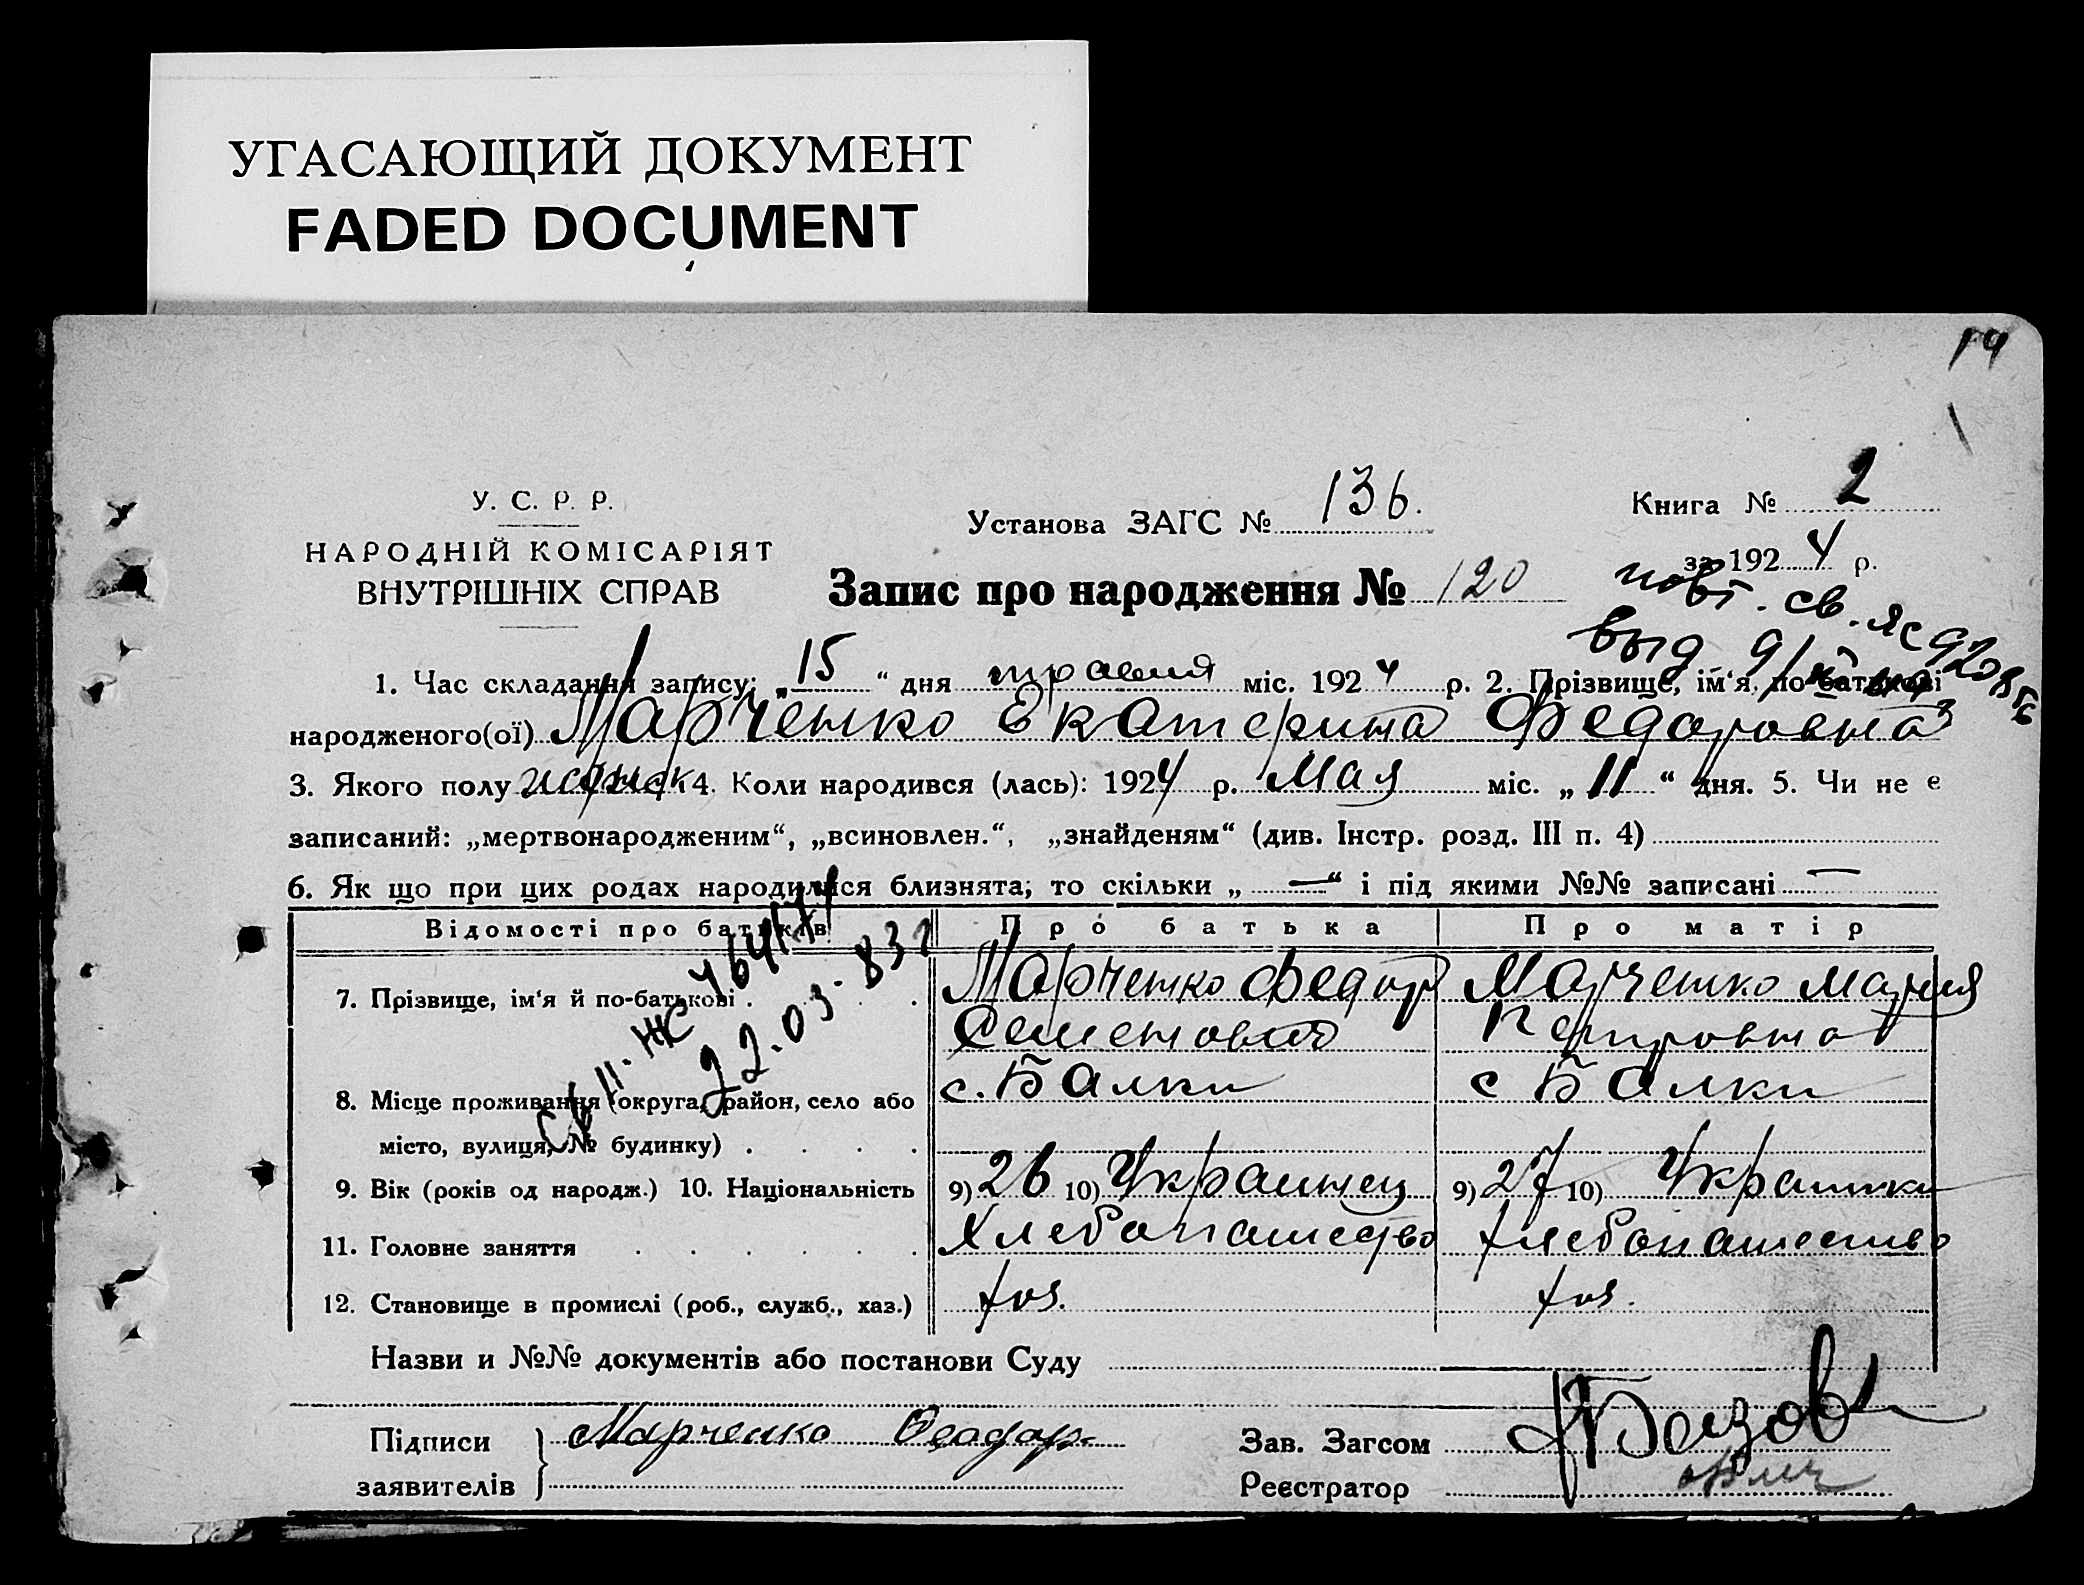 УГАСАЮЩИЙ ДОКУМЕНТ
FADED DOCUMENT
14
У. С. Р. Р.
НАРОДНІЙ КОМІСАРІЯТ
ВНУТРІШНІХ СПРАВ
Установа ЗАГС № 136.
Книга № 2
за 1924 р.
Запис про народження № 120
повт. св. ЯС
выд 9/
1. Час складання запису: „15“ дня травня міс. 1924 р. 2. Прізвище, ім‘я, по-батькові
народженого(ої) Марченко Екатерина Федоровна
3. Якого полу женск 4. Коли народився (лась): 1924 р. Мая міс. „11“ дня. 5. Чи не є
записаний: „мертвонародженим“, „всиновлен.“, „знайденям“ (див. Інстр. розд. III п. 4)
6. Як що при цих родах народилися близнята, то скільки „ — “ і під якими №№ записані —
Відомості про батьків
Про батька
Про матір
7. Прізвище, ім‘я й по-батькові
Марченко Федор
Семенович
Марченко Мария
Петровна
св II. ЖС
22.03.83г
8. Місце проживання (округа, район, село або
місто, вулиця, № будинку)
с. Балки
с Балки
9. Вік (років од народж.) 10. Національність
9) 26 10) Украинец
9) 27 10) Украинка
11. Головне заняття
Хлебопашество
Хлебопашество
12. Становище в промислі (роб., служб., хаз.)
хоз.
хоз.
Назви и №№ документів або постанови Суду
Підписи
заявителів
Марченко Феодор
Зав. Загсом
Реєстратор